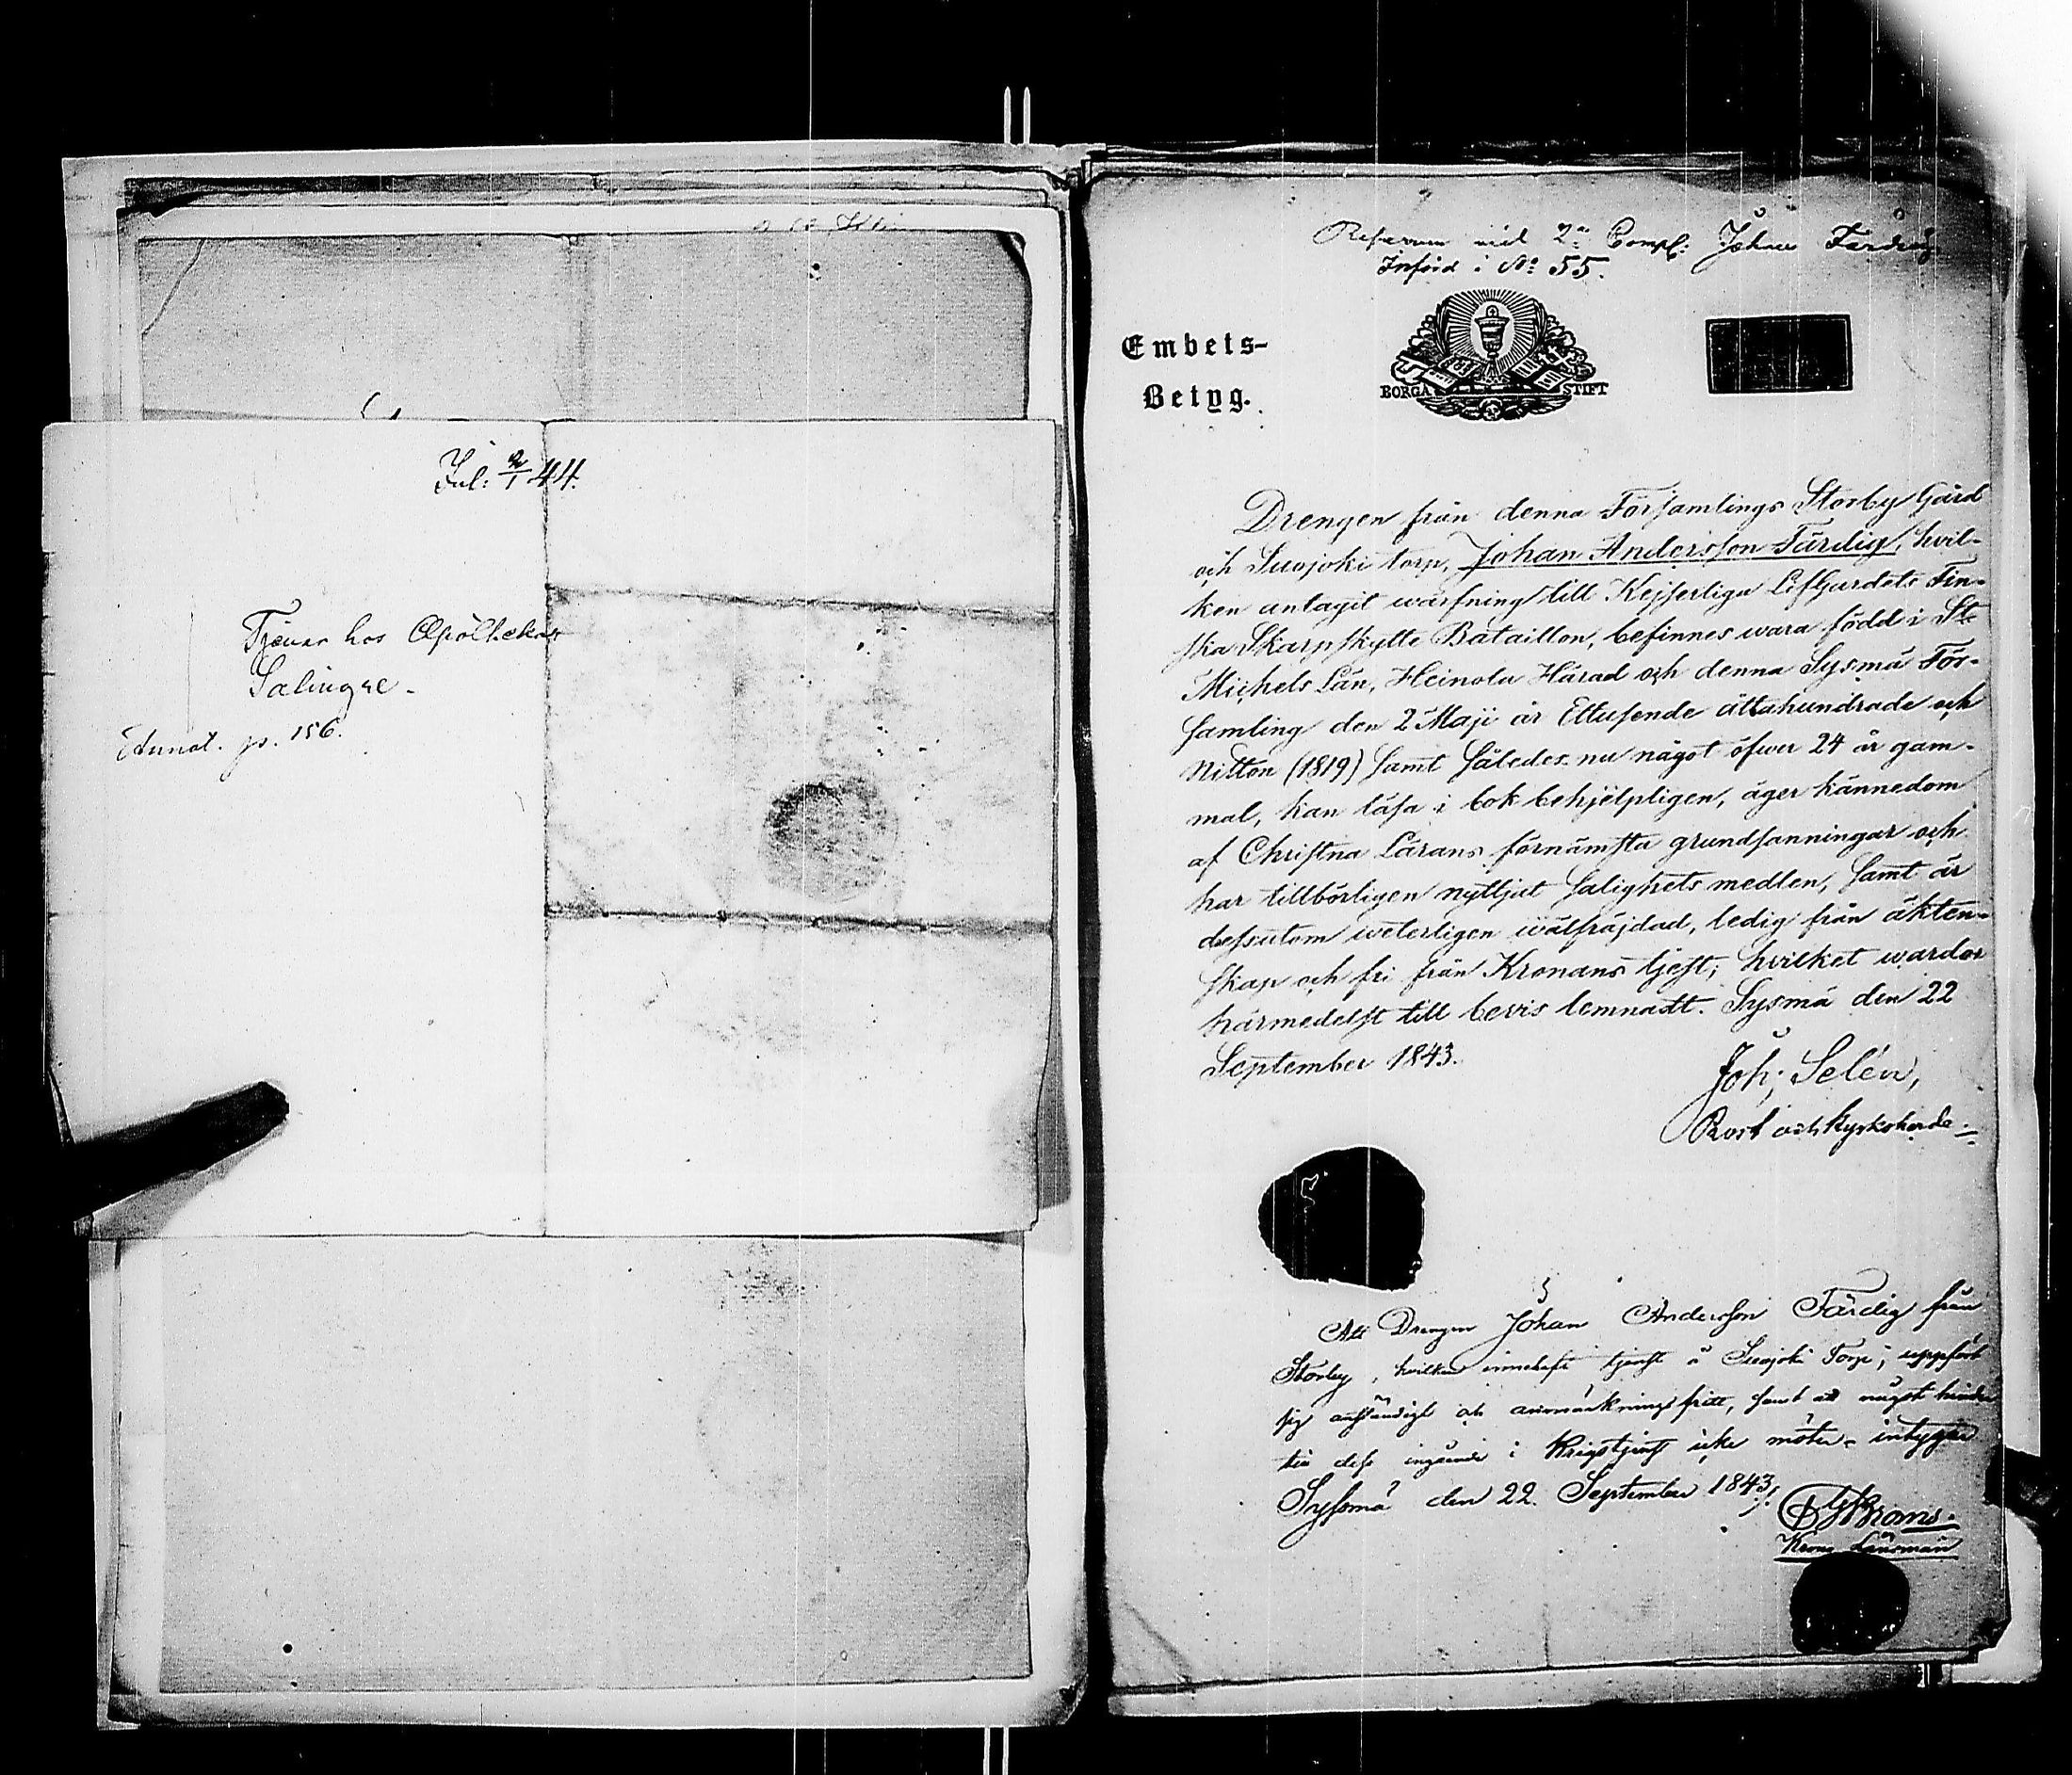 Jul: 2/1 44.
Tjenar hos Apothekar
Salingre.
Annot. p. 156.
vid 2a Comp: Johan Färdig
Införd i No 55.
Embets-
Betyg.
BORGÅ STIFT
Drengen från denna Församlings Storby Gård
och Suojoki torp, Johan Andersson Färdig, hvil-
ken antagit warfning till Kejserliga LifGardets Fin-
ska Skarpskytte Bataillon, befinnes wara född i St
Michels Län, Heinola Härad och denna Sysmä För-
samling den 2 Maji år Ettusende åttahundrade och
Nitton (1819) samt således nu något öfwer 24 år gam-
mal, kan läsa i bok behjelpligen, äger kännedom
af Christna Lärans förnämsta grundsanningar och
har tillbörligen nyttjat salighets medlen, samt är
dessutom weterligen wälfräjdad, ledig från äkten-
skap och fri från Kronans tjest; hvilket warder
härmedelst till bevis lemnadt. Sysmä den 22
September 1843.
Joh: Selén,
Prost och Kyrkoherde.
Att Drengen Johan Andersson Färdig från
Storby, hvilken innehaft tjenst å Suojoki Torp, uppfört
sig anständigt och anmärkningsfritt, samt att något hinder
till dess ingående i Krigstjenst icke möter, intygar
Syssmä den 22 September 1843.
Krono Länsman